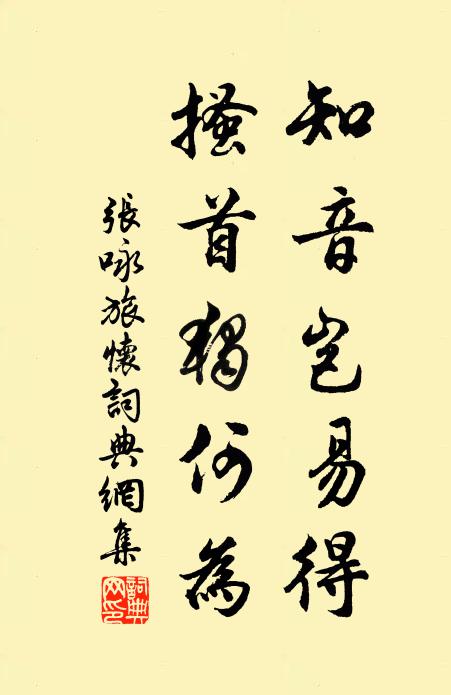 知音岂易得
搔首獨何為
張咏旅懷詞典網集
詞典網印